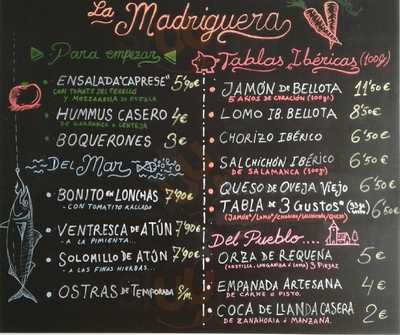 La Madriguera
Para empezar
ENSALADA "CAPRESE" 5'90€
CON TOMATE DEL TERRENO
Y MOZZARELLA DI BUFALA
HUMMUS CASERO 4€
DE GARBANZO o LENTEJA
BOQUERONES 3€
Del Mar
BONITO EN LONCHAS 7'90€
- CON TOMATITO RALLADO
VENTRESCA DE ATÚN 7'90€
- A LA PIMIENTA...
SOLOMILLO DE ATÚN 7'90€
- A LAS FINAS HIERBAS...
OSTRAS DE TEMPORADA S/m.
Tablas Ibéricas (100g)
JAMÓN DE BELLOTA 11'50€
5 AÑOS DE CURACIÓN (100gr.)
LOMO IB. BELLOTA 8'50€
CHORIZO IBÉRICO 6'50€
SALCHICHÓN IBÉRICO 6'50€
DE SALAMANCA (100gr)
QUESO DE OVEJA VIEJO 6'50€
TABLA DE 3 GUSTOS 6'50€
(JAMÓN/LOMO/CHORIZO/SALCHICHÓN/QUESO)
Del Pueblo....
ORZA DE REQUENA 5€
(COSTILLA, LONGANIZA o LOMO) 3 PIEZAS
EMPANADA ARTESANA 4€
DE CARNE o PISTO.
COCA DE LLANDA CASERA 2€
DE ZANAHORIA o MANZANA.